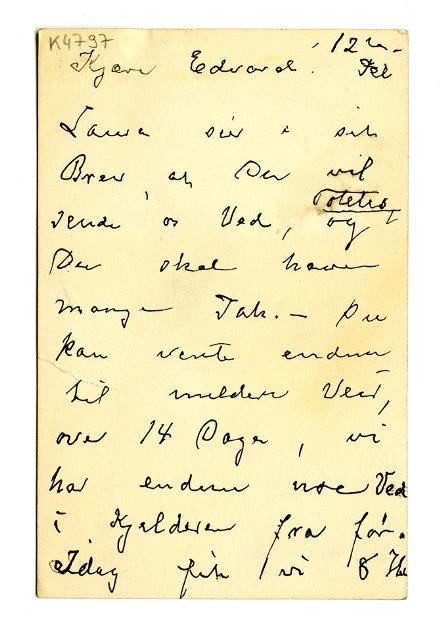 K4797
12te
Kjære Edvard. Feb
Laura siër i sit
Brev, at Du vil
Poteter
sende os Ved, og
Du skal have
mange Tak. – Du
kan vente endnu
til mildere Veir,
over 14 Dage, vi
har endnu noe Ved
i Kjelderen fra før.
Idag fik vi 8